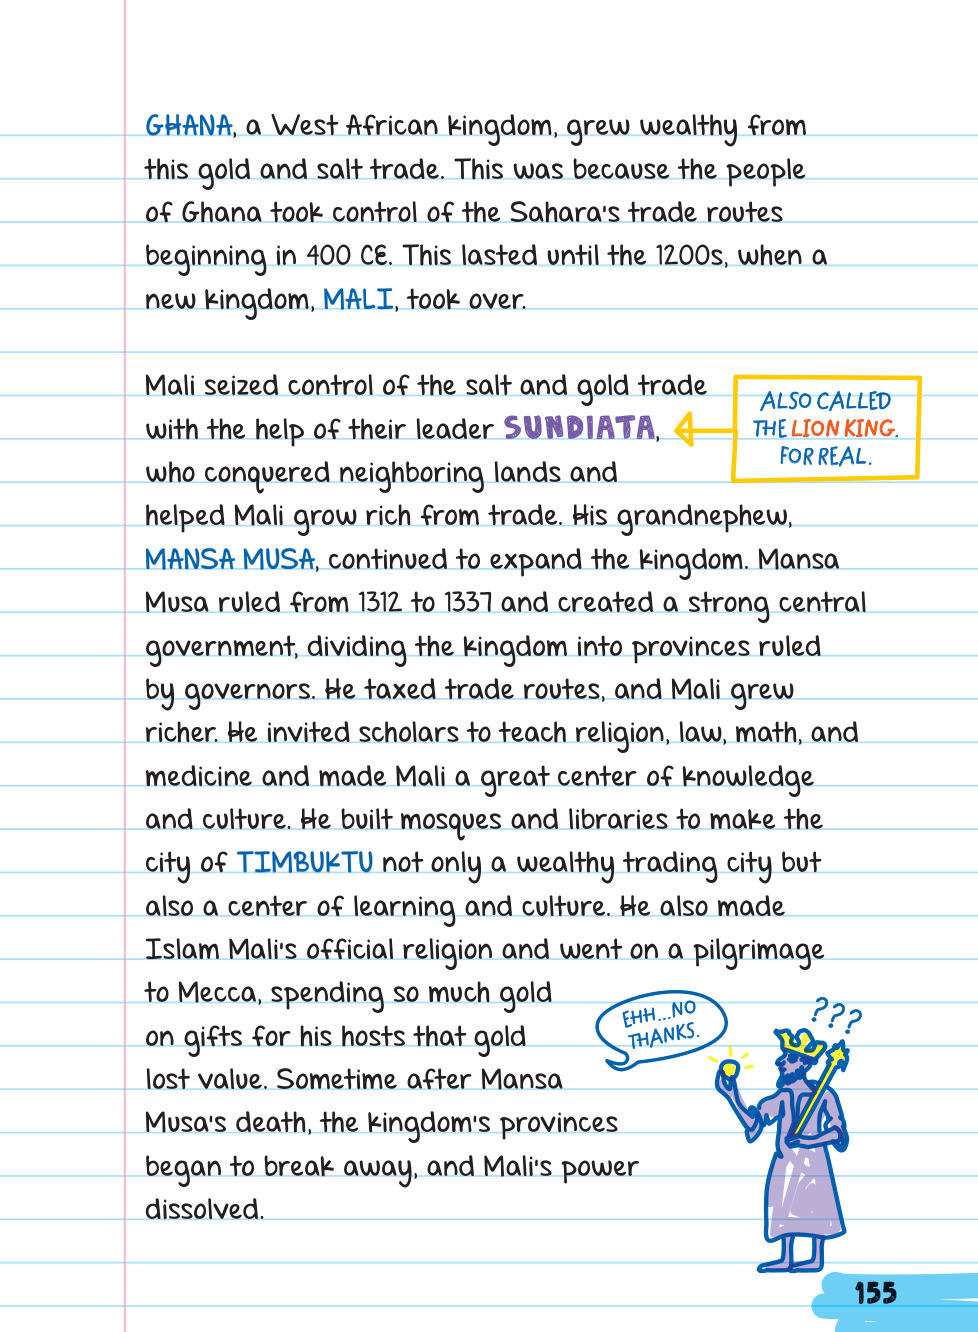 GHANA, a West African kingdom, grew wealthy from
this gold and salt trade. This was because the people
of Ghana took control of the Sahara's trade routes
beginning in 400 CE. This lasted until the 1200s, when a
new kingdom, MALI, took over.
Mali seized control of the salt and gold trade
with the help of their leader SUNDIATA,
who conquered neighboring lands and
helped Mali grow rich from trade. His grandnephew,
MANSA MUSA, continued to expand the kingdom. Mansa
Musa ruled from 1312 to 1337 and created a strong central
government, dividing the kingdom into provinces ruled
by governors. He taxed trade routes, and Mali grew
richer. He invited scholars to teach religion, law, math, and
medicine and made Mali a great center of knowledge
and culture. He built mosques and libraries to make the
city of TIMBUKTU not only a wealthy trading city but
also a center of learning and culture. He also made
Islam Mali's official religion and went on a pilgrimage
to Mecca, spending so much gold
on gifts for his hosts that gold
lost value. Sometime after Mansa
Musa's death, the kingdom's provinces
began to break away, and Mali's power
dissolved.
ALSO CALLED
THE LION KING.
FOR REAL.
EHH...NO
THANKS.
???
155